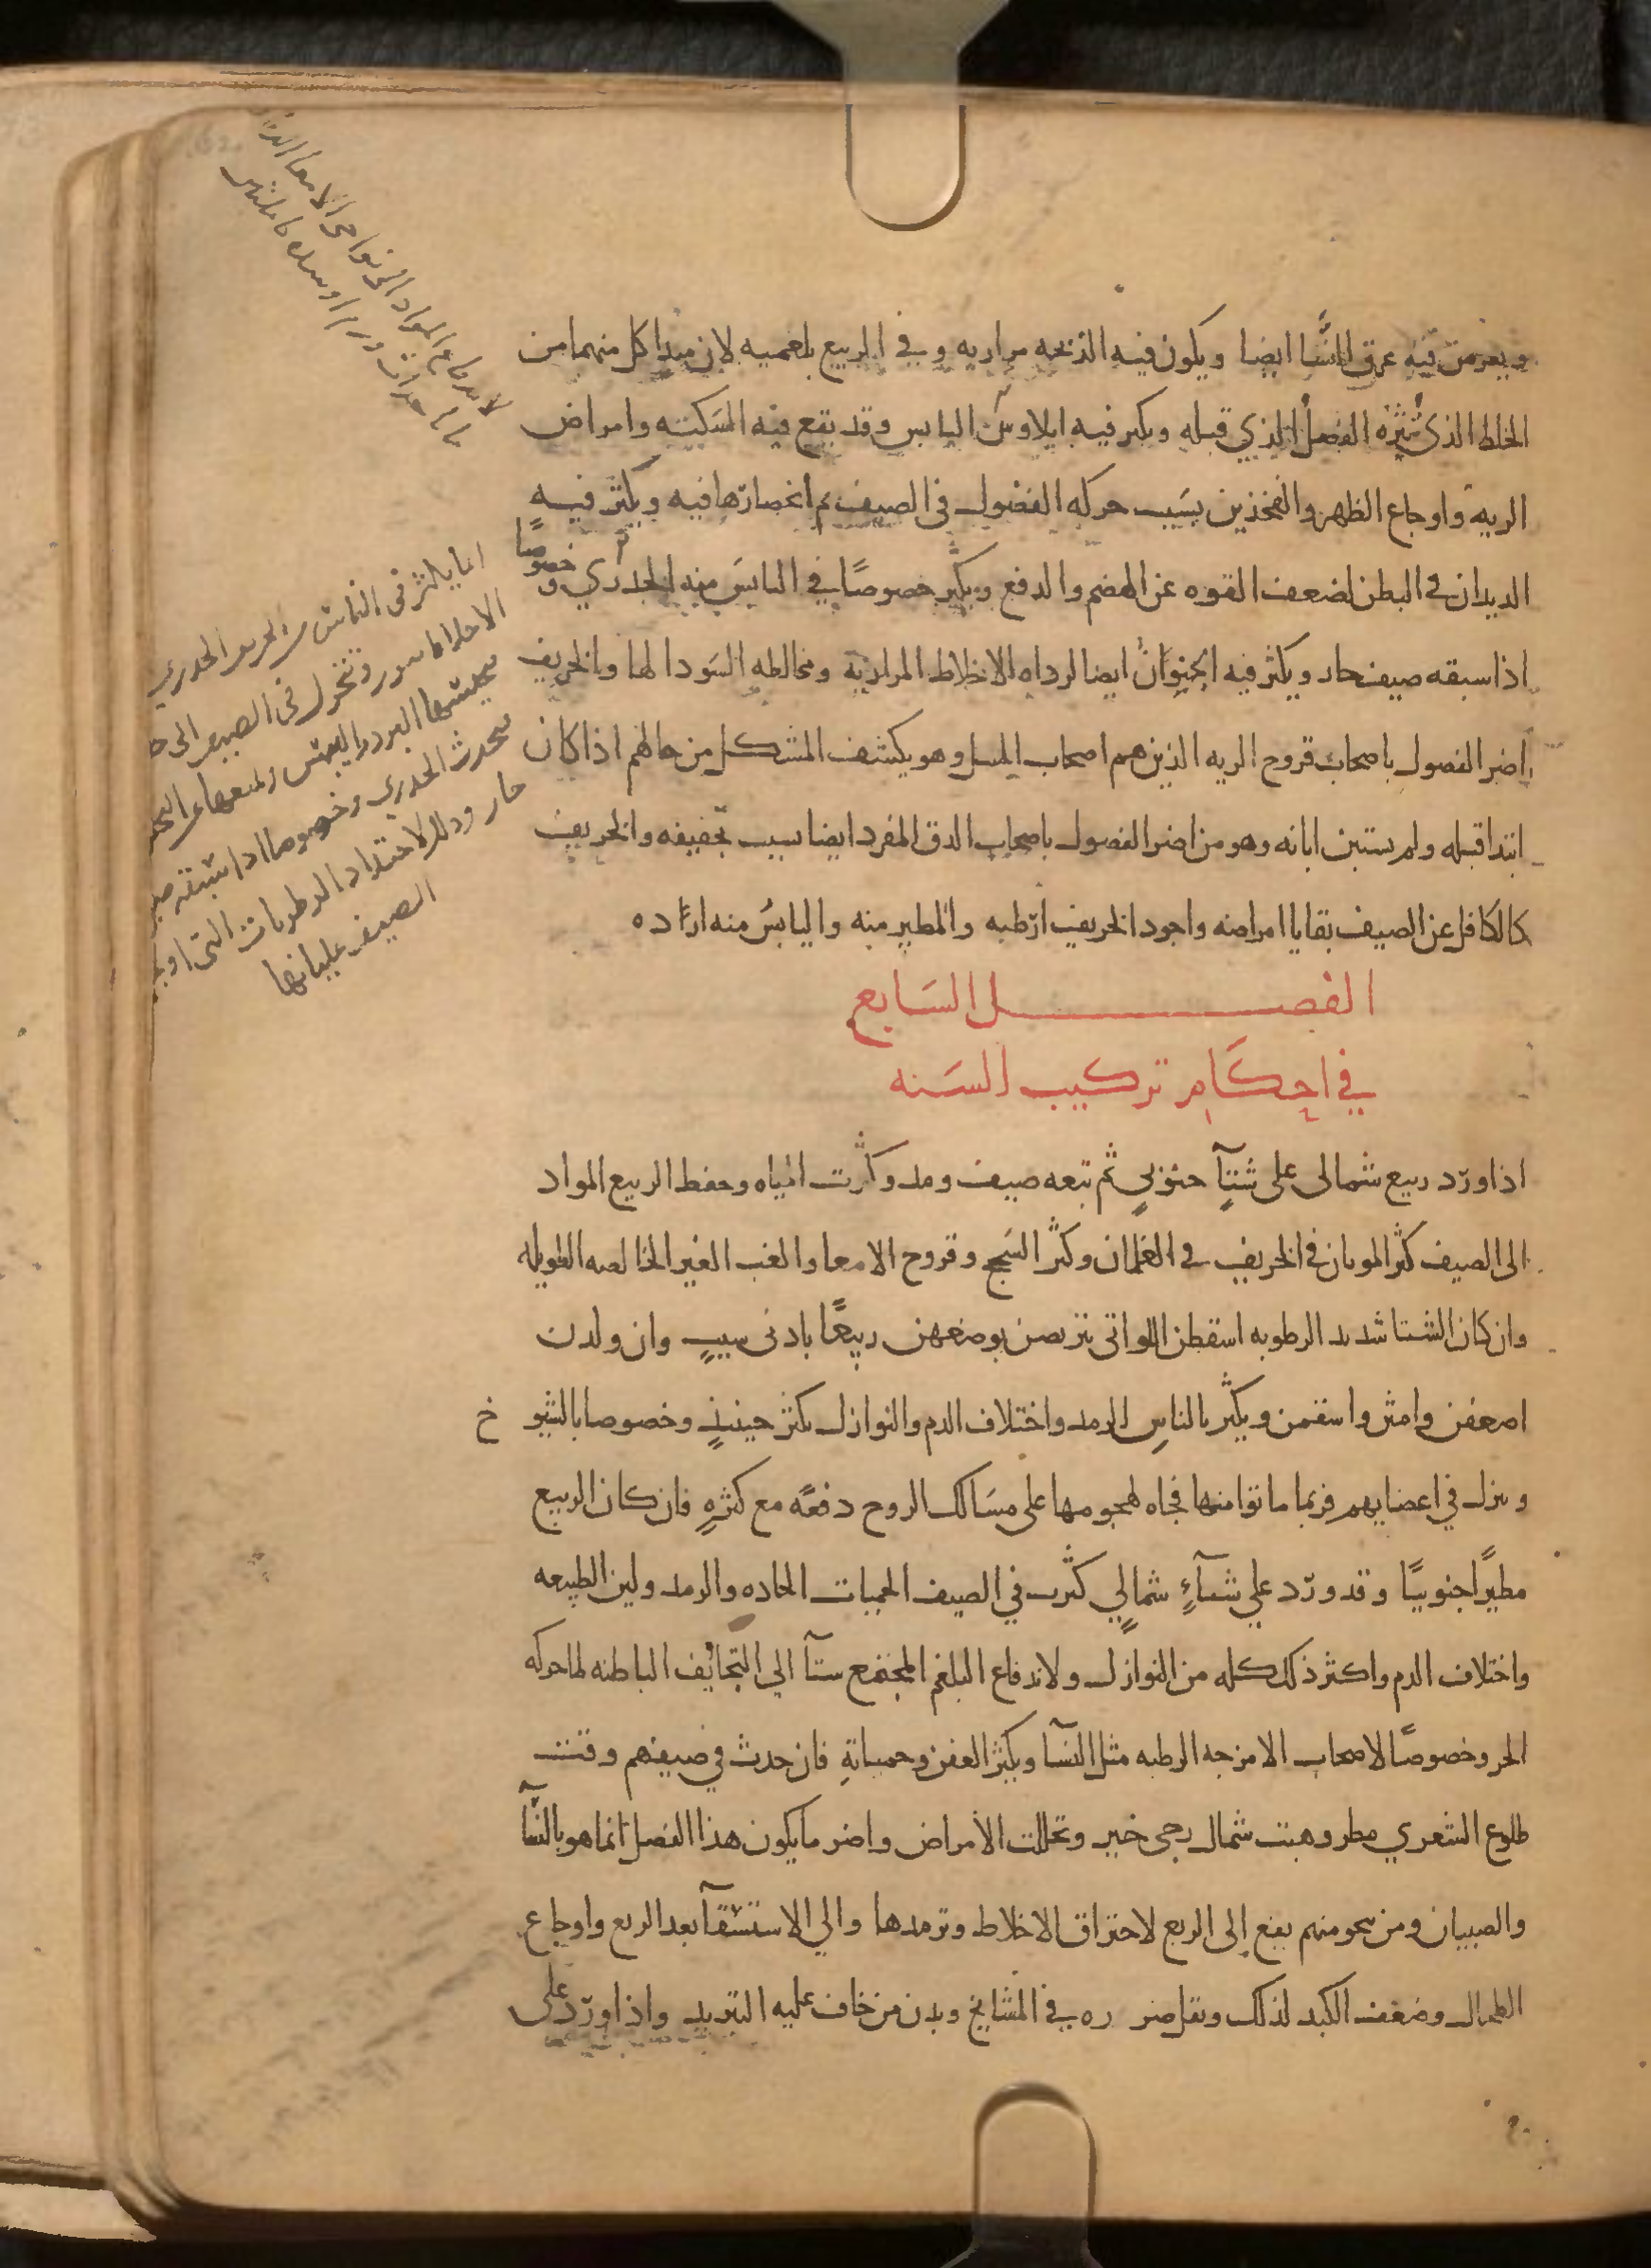 ويعرض فيه عرق النسا ايضا ويكون فيه الذبحه مراريه وفي الربيع بلغميه لان مبدا كل منهما من
الخلط الذي تثيره الفصل الذي قبله ويكثر فيه ايلاوس اليابس وقد يقع فيه السكته وامراض
الريه واوجاع الظهر والفخذين بسبب حركه الفضول في الصيف ثم انحصارها فيه ويكثر فيه
الديدان في البطن لضعف القوه عن الهضم والدفع ويكثر خصوصًا في اليابس منه الجدري وخصوصًا
اذا سبقه صيف حار ويكثر فيه الجنون ايضا لرداه الاخلاط المراريه ومخالطه السودا لها والخريف
اضر الفصول باصحاب قروح الريه الذين هم اصحاب السل وهو يكشف المشكل من حالهم اذا كان
ابتدا قبله ولم يستبن اياته وهو من اضر الفصول باصحاب الدق المفرد ايضا بسبب تجفيفه والخريف
كالكافل عن الصيف بقايا امراضه واجود الخريف ارطبه والمطير منه واليابس منه اردا ه
الفصل السابع
في احكام تركيب السنه
اذا ورد ربيع شمالى على شتآٍ جنوبيٍ ثم تبعه صيف ومد وكثرت المياه وحفظ الربيع المواد
الى الصيف كثر الموتان في الخريف في الغلمان وكثر السحج وقروح الامعا والغب الغير الخالصه الطويله
وان كان الشتا شديد الرطوبه اسقطن اللواتى يتربصن بوضعهن ربيعًا بادنى سببٍ وان ولدن
اضعفن وامتن واسقمن ويكثر بالناس الرمد واختلاف الدم والنوازل يكثر حينئذٍ وخصوصا بالشيوخ
وينزل في اعصابهم فربما ماتوا منها فجاه لهجومها على مسالك الروح دفعًه مع كثرهٍ فان كان الربيع
مطيرًا جنوبيًا وقد ورد علي شتآءٍ شماليٍ كثرت في الصيف الحميات الحاده والرمد ولين الطبيعه
واختلاف الدم واكثر ذلك كله من النوازل ولاندفاع البلغم المجتمع ستآ الي التجاويف الباطنه لما حركه
الحر وخصوصًا لاصحاب الامزجه الرطبه مثل النسآ ويكثر العفن وحمياته فان حدث في صيفهم وقت
طلوع الشعري مطر وهبت شمال رجى خير وتحللت الامراض واضر ما يكون هذا الفصل انما هو بالنسآ
والصبيان ومن ينجو منهم يقع الى الربع لاحتراق الاخلاط وترمدها والي الاستسقآ بعد الربع واوجاع
الطحال وضعف الكبد لذلك ويقل ضرره في المشايخ وبدن من خاف عليه التبريد واذا ورد على
انما يكثر في اليابس
وتتحرك في الصيف الى
البرد واليبس
يحدث الجدري وخصوصا اذا سبقه
حار وذلك لاحتداد الرطوبات التى
الصيف غليانها